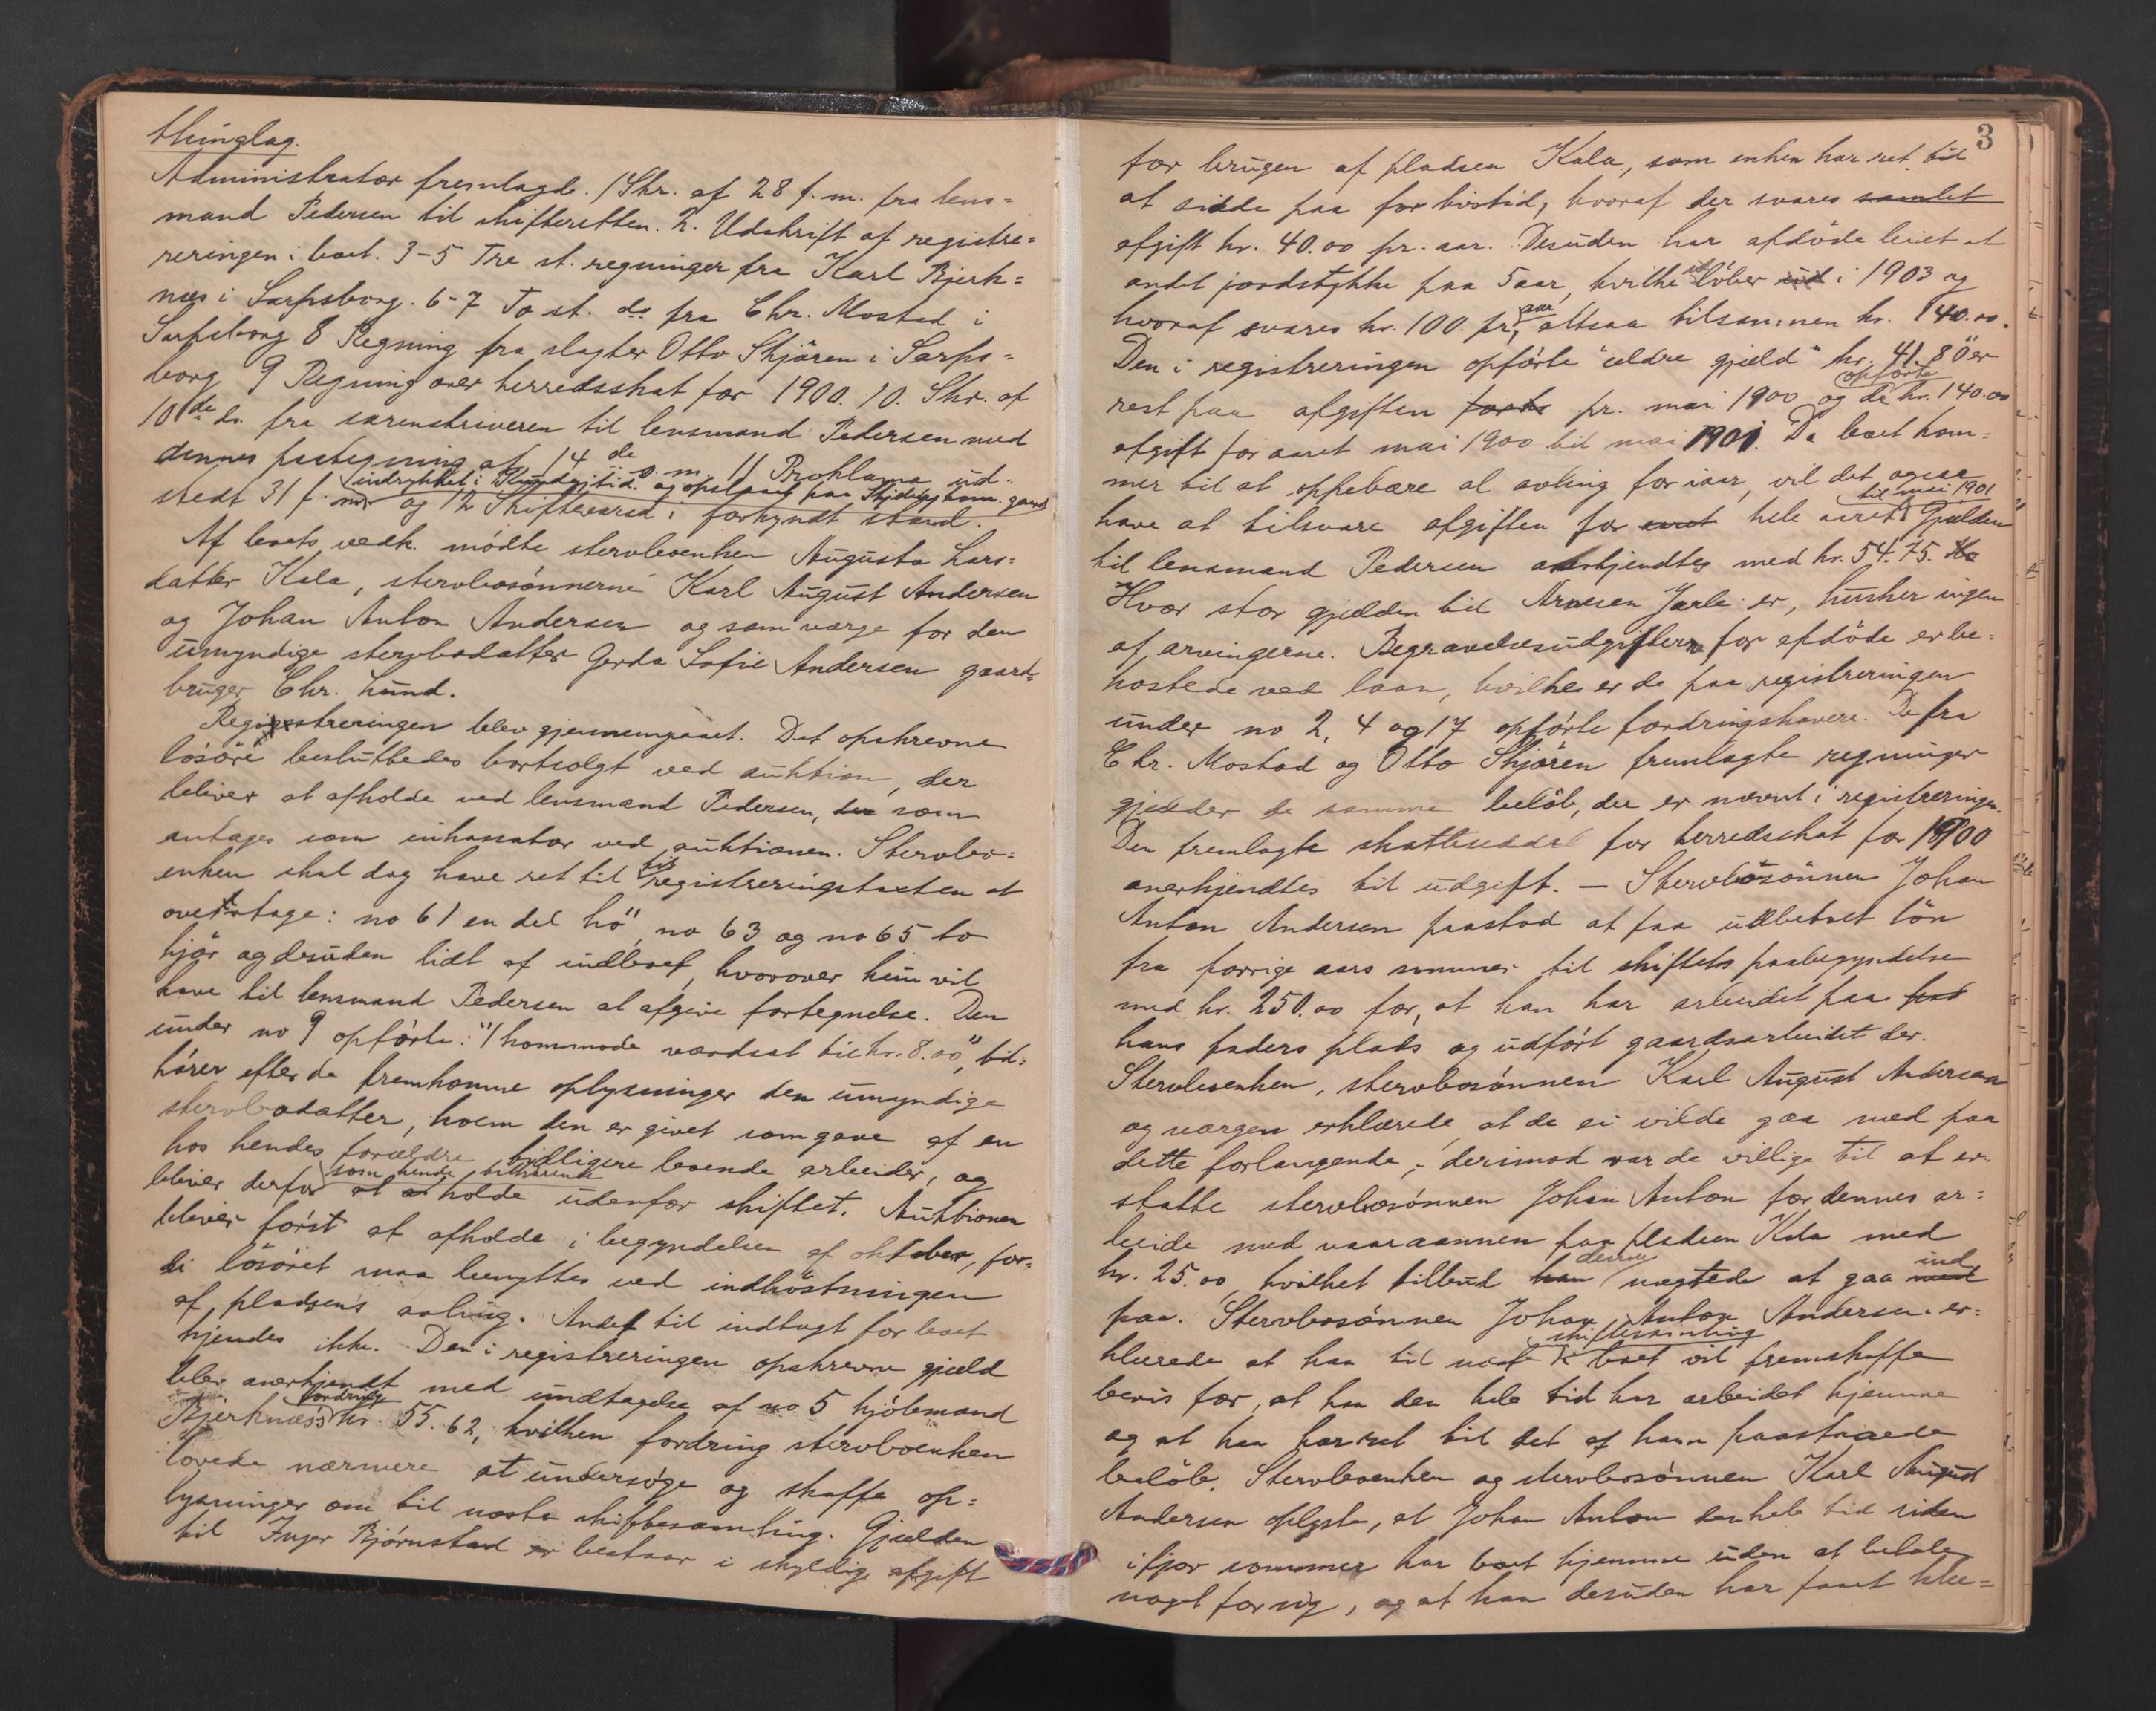 thinglag.
Administrator fremlagde. 1 Skr. af 28 f. m. fra lens=
mand Pedersen til skifteretten. 2. Udskrift af registre=
reringen i boet. 3-5 Tre st. regninger fra Karl Bjerk=
næs i Sarpsborg. 6-7 To st. do fra Chr. Mostad i
Sarpsborg 8 Regning fra slagter Otto Skjören i Sarps=
borg 9 Regning over herredsskat for 1900. 10. Skr. af
10de ds. fra sorenskriveren til lensmand Pedersen med
dennes paategning af 14de s. m. 11 Proklama ud=
indrykket i Kundgj.tid. og opslaaet paa Skjeberg kom. gaard
stedt 31 f. mdr og 12 Skiftevarsel i forkyndt stand.
Af boets vedk. mødte stervboenken Augusta Lars=
datter Kala, stervbosønnerne Karl August Andersen
og Johan Anton Andersen og som værge for den
umyndige stervbodatter Gerda Sofie Andersen gaard=
bruger Chr. Lund.
Registreringen blev gjennemgaaet. Det opskrevne
løsøre besluttedes bortsolgt ved auktion, der
bliver at afholde ved lensmand Pedersen, der som
antages som inkassator ved auktionen. Stervbo=
enken skal dog have ret til til registreringstaksten at
overtage: no 61 en del hö, no 63 og no 65 to
kjör og desuden lidt af indboet, hvorover hun vil
have til lensmand Pedersen at afgive fortegnelse. Den
under no 9 opførte: "1 kommode værdsat til kr. 8.00", til=
hører efter de fremkomne oplysninger den umyndige
stervbodatter, hvem den er givet som gave af en
hos hendes forældre tidligere boende arbeider, og
som hende tilhørende
bliver derfor at holde udenfor skiftet. Auktionen
bliver først at afholde i begyndelsen af oktober, for=
di løsöret maa benyttes ved indhöstningen
af pladsens avling. Andet til indtægt for boet
kjendes ikke. Den i registreringen opskrevne gjæld
blev anerkjendt med undtagelse af no 5 kjöbmand
fordring
Bjerknæs's kr. 55.62, hvilken fordring stervboenken
lovede nærmere at undersøge og skaffe op=
lysninger om til næste skiftesamling. Gjælden
til Inger Bjørnstad er bestaar i skyldig afgift
3
for brugen af pladsen Kala, som enken har ret til
at sidde paa for livstid, hvoraf der svares samlet
afgift kr. 40.00 pr. aar. Desuden har afdöde leiet et
andet jordstykke paa 5 aar, hvilke ud löber ud i 1903 og
hvoraf svares kr. 100. pr. aar, altsaa tilsammen kr. 140.00.
Den i registreringen opførte "ældre gjæld" kr. 41.80 er
opførte
rest paa afgiften pr. mai 1900 og de kr. 140.00
afgift for aaret mai 1900 til mai 1901. Da boet kom=
mer til at oppebære al avling for iaar, vil det ogsaa
til mai 1901
have at tilsvare afgiften for aaret hele aaret. Gjælden
til lensmand Pedersen anerkjendtes med kr. 54.75.
Hvor stor gjælden til Arnesen Jarle er, husker ingen
af arvingerne. Begravelsesudgifterne for afdöde er be=
kostede ved laan, hvilke er de paa registreringen
under no 2, 4 og 17 opførte fordringshavere. De fra
Chr. Mostad og Otto Skjören fremlagte regninger
gjælder de samme beløb, der er nævnt i registreringen.
Den fremlagte skatteseddel for herredsskat for 1900
anerkjendtes til udgift. – Stervbosönnen Johan
Anton Andersen paastod at faa udbetalt lön
fra forrige aars sommer til skiftets paabegyndelse
med kr. 250.00 for, at han har arbeidet paa
hans faders plads og udført gaardsarbeidet der.
Stervboenken, stervbosønnen Karl August Andersen
og værgen erklærede, at de ei vilde gaa med paa
dette forlangende, derimod var de villige til at er=
statte stervbosønnen Johan Anton for dennes ar=
beide med vaaraannen paa pladsen Kala med
kr. 25.00, hvilket tilbud han denne nægtede at gaa med ind
paa. Stervbosønnen Johan Anton Andersen er=
skiftesamling
klærede at han til næste i boet vil fremskaffe
bevis for, at han den hele tid har arbeidet hjemme
og at han har ret til det af ham paastaaede
beløb. Stervboenken og stervbosønnen Karl August
Andersen oplyste, at Johan Anton den hele tid siden
ifjor sommer har boet hjemme uden at betale
noget for sig, og at han desuden har faaet klæ=